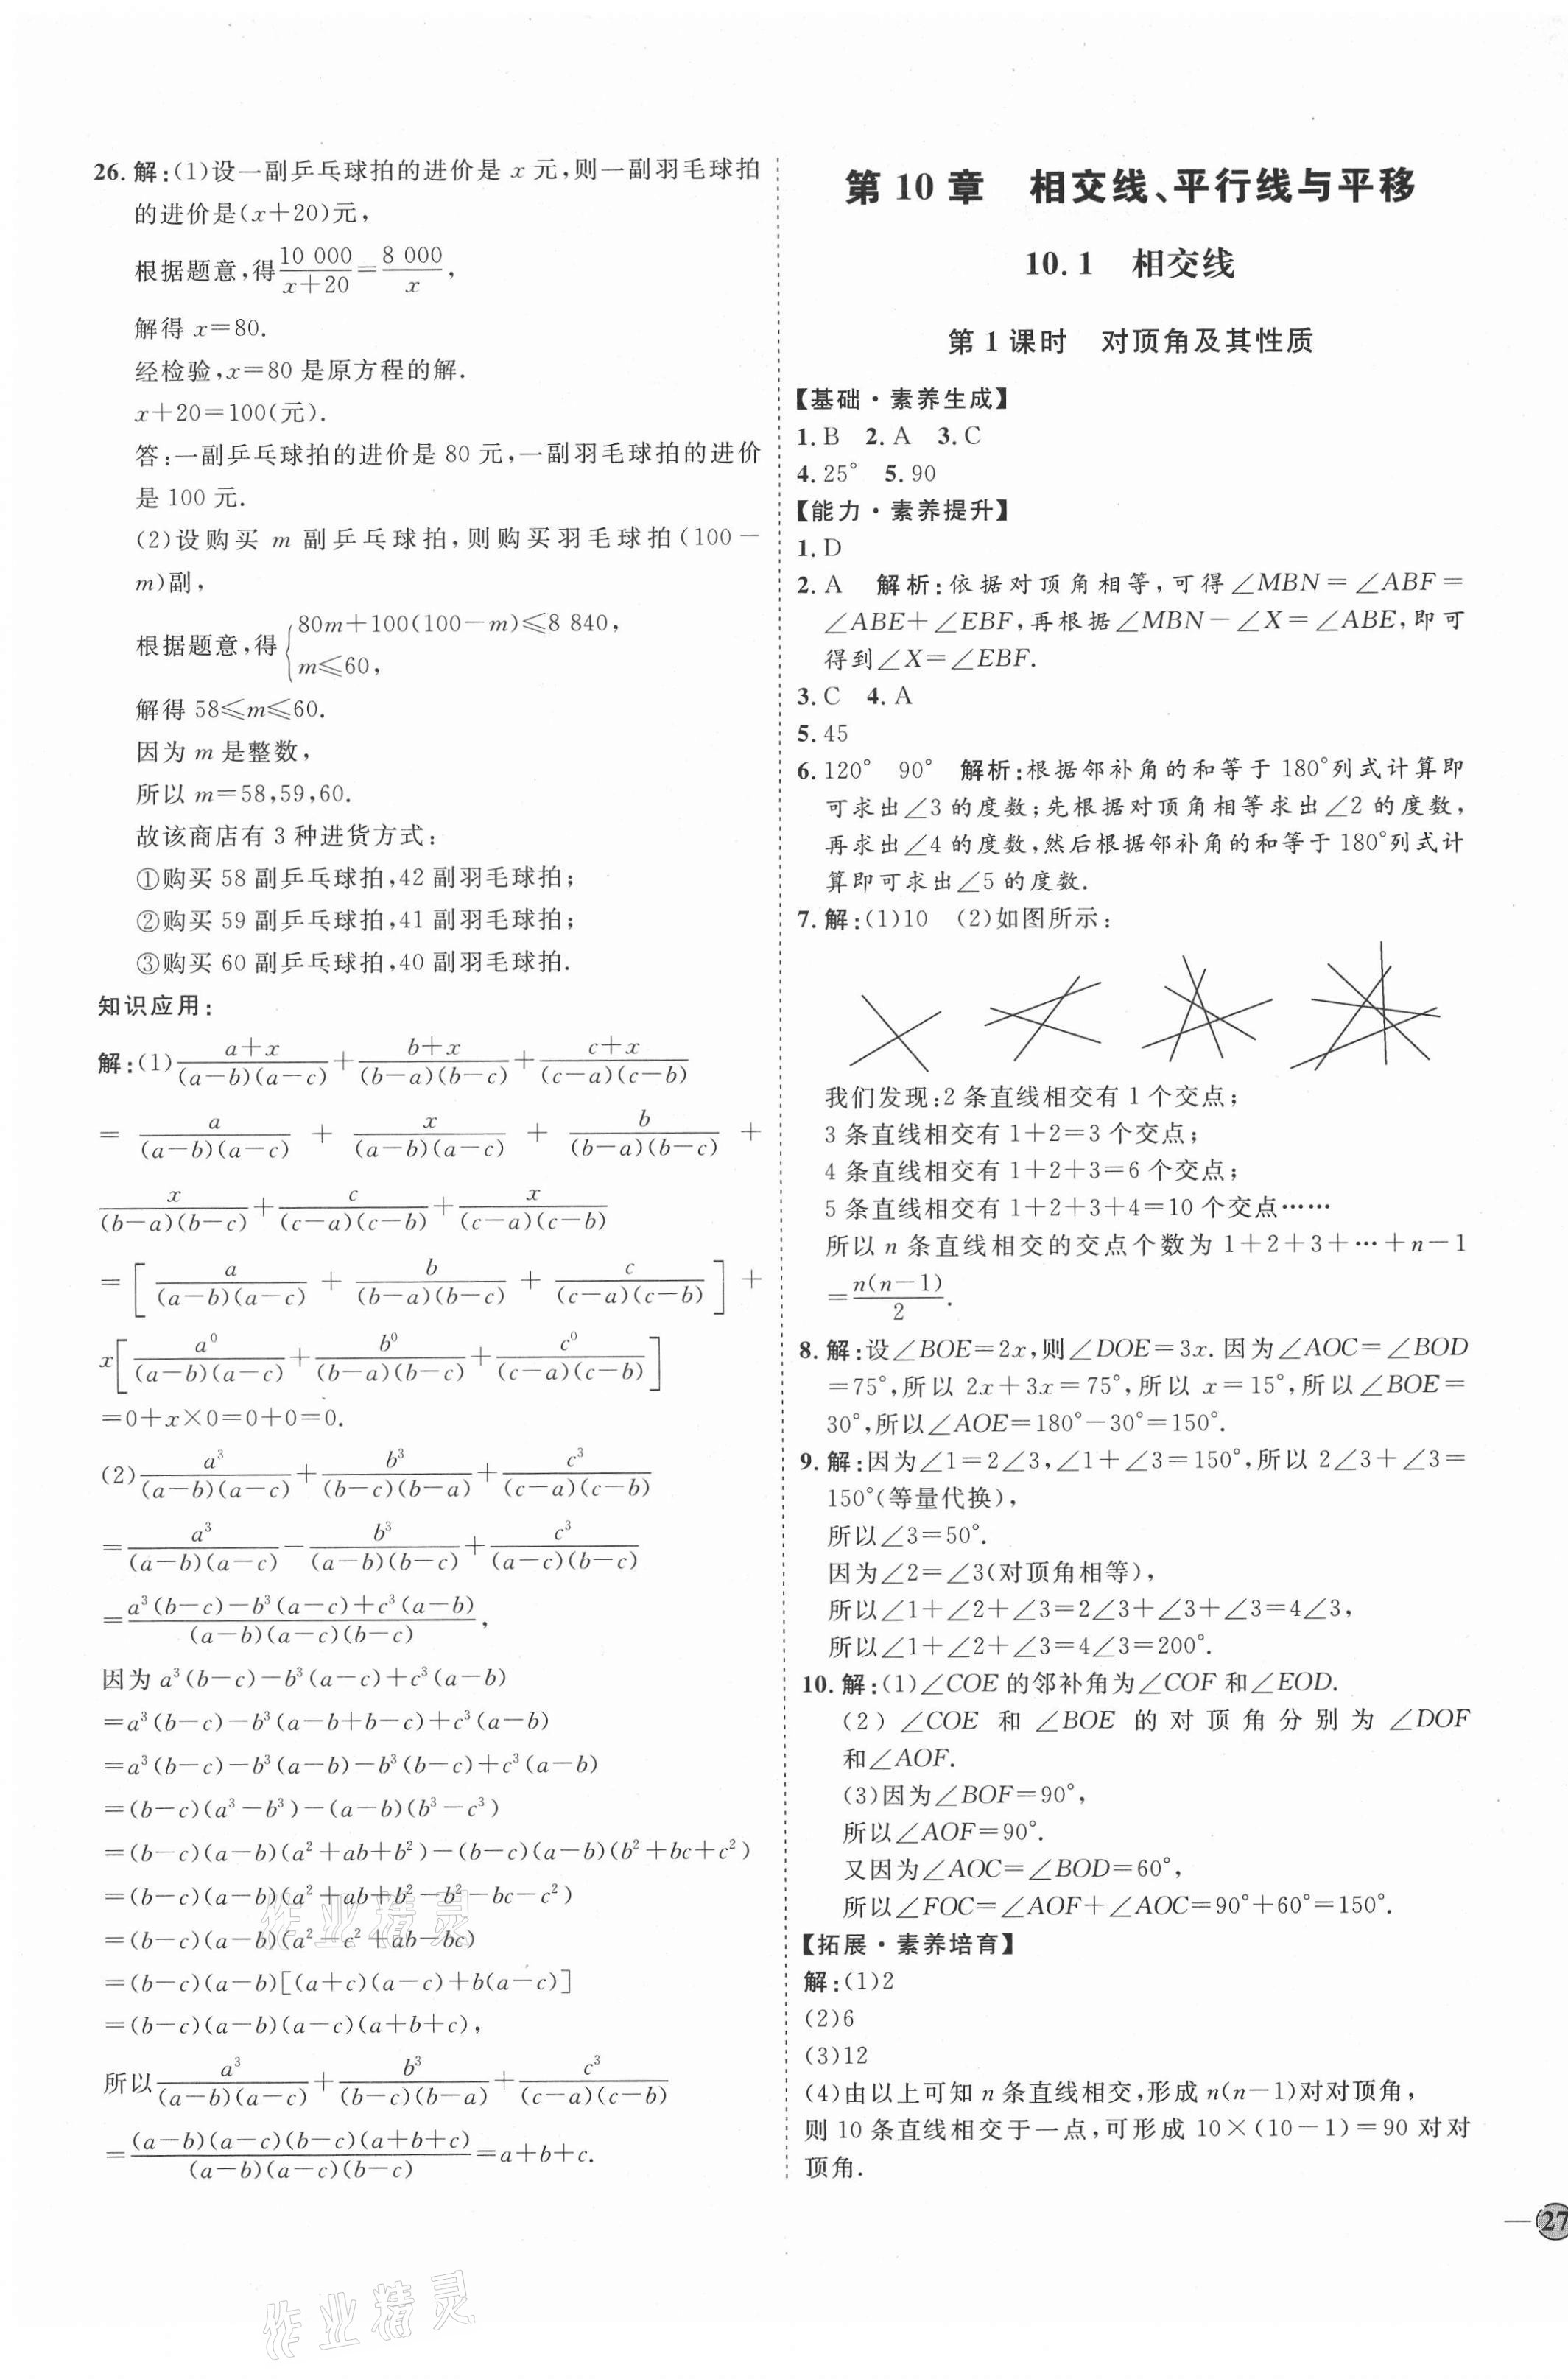 26. 解:(1)设一副乒乓球拍的进价是 x 元,则一副羽毛球拍
的进价是(x+20)元,
根据题意,得\frac{10 000}{x+20}=\frac{8 000}{x},
解得 x=80.
经检验,x=80 是原方程的解.
x+20=100(元).
答:一副乒乓球拍的进价是 80 元,一副羽毛球拍的进价
是 100 元.
(2)设购买 m 副乒乓球拍,则购买羽毛球拍(100-
m)副,
根据题意,得{80m+100(100-m)≤8 840,
m≤60,
解得 58≤m≤60.
因为 m 是整数,
所以 m=58,59,60.
故该商店有 3 种进货方式:
①购买 58 副乒乓球拍,42 副羽毛球拍;
②购买 59 副乒乓球拍,41 副羽毛球拍;
③购买 60 副乒乓球拍,40 副羽毛球拍.
知识应用:
解:(1)\frac{a+x}{(a-b)(a-c)}+\frac{b+x}{(b-a)(b-c)}+\frac{c+x}{(c-a)(c-b)}
=\frac{a}{(a-b)(a-c)}+\frac{x}{(a-b)(a-c)}+\frac{b}{(b-a)(b-c)}+
\frac{x}{(b-a)(b-c)}+\frac{c}{(c-a)(c-b)}+\frac{x}{(c-a)(c-b)}
=[\frac{a}{(a-b)(a-c)}+\frac{b}{(b-a)(b-c)}+\frac{c}{(c-a)(c-b)}]+
x[\frac{a⁰}{(a-b)(a-c)}+\frac{b⁰}{(b-a)(b-c)}+\frac{c⁰}{(c-a)(c-b)}]
=0+x×0=0+0=0.
(2)\frac{a³}{(a-b)(a-c)}+\frac{b³}{(b-c)(b-a)}+\frac{c³}{(c-a)(c-b)}
=\frac{a³}{(a-b)(a-c)}-\frac{b³}{(a-b)(b-c)}+\frac{c³}{(a-c)(b-c)}
=\frac{a³(b-c)-b³(a-c)+c³(a-b)}{(a-b)(a-c)(b-c)},
因为 a³(b-c)-b³(a-c)+c³(a-b)
=a³(b-c)-b³(a-b+b-c)+c³(a-b)
=a³(b-c)-b³(a-b)-b³(b-c)+c³(a-b)
=(b-c)(a³-b³)-(a-b)(b³-c³)
=(b-c)(a-b)(a²+ab+b²)-(b-c)(a-b)(b²+bc+c²)
=(b-c)(a-b)(a²+ab+b²-b²-bc-c²)
=(b-c)(a-b)(a²-c²+ab-bc)
=(b-c)(a-b)[(a+c)(a-c)+b(a-c)]
=(b-c)(a-b)(a-c)(a+b+c),
所以\frac{a³}{(a-b)(a-c)}+\frac{b³}{(b-c)(b-a)}+\frac{c³}{(c-a)(c-b)}
=\frac{(a-b)(a-c)(b-c)(a+b+c)}{(a-b)(a-c)(b-c)}=a+b+c.
第 10 章 相交线、平行线与平移
10.1 相交线
第 1 课时 对顶角及其性质
【基础·素养生成】
1. B 2. A 3. C
4. 25° 5. 90
【能力·素养提升】
1. D
2. A 解析:依据对顶角相等,可得∠MBN=∠ABF=
∠ABE+∠EBF,再根据∠MBN-∠X=∠ABE,即可
得到∠X=∠EBF.
3. C 4. A
5. 45
6. 120° 90° 解析:根据邻补角的和等于 180°列式计算即
可求出∠3 的度数;先根据对顶角相等求出∠2 的度数,
再求出∠4 的度数,然后根据邻补角的和等于 180°列式计
算即可求出∠5 的度数.
7. 解:(1)10 (2)如图所示:
我们发现:2 条直线相交有 1 个交点;
3 条直线相交有 1+2=3 个交点;
4 条直线相交有 1+2+3=6 个交点;
5 条直线相交有 1+2+3+4=10 个交点……
所以 n 条直线相交的交点个数为 1+2+3+…+n-1
=\frac{n(n-1)}{2}.
8. 解:设∠BOE=2x,则∠DOE=3x. 因为∠AOC=∠BOD
=75°,所以 2x+3x=75°,所以 x=15°,所以∠BOE=
30°,所以∠AOE=180°-30°=150°.
9. 解:因为∠1=2∠3,∠1+∠3=150°,所以 2∠3+∠3=
150°(等量代换),
所以∠3=50°.
因为∠2=∠3(对顶角相等),
所以∠1+∠2+∠3=2∠3+∠3+∠3=4∠3,
所以∠1+∠2+∠3=4∠3=200°.
10. 解:(1)∠COE 的邻补角为∠COF 和∠EOD.
(2)∠COE 和∠BOE 的对顶角分别为∠DOF
和∠AOF.
(3)因为∠BOF=90°,
所以∠AOF=90°.
又因为∠AOC=∠BOD=60°,
所以∠FOC=∠AOF+∠AOC=90°+60°=150°.
【拓展·素养培育】
解:(1)2
(2)6
(3)12
(4)由以上可知 n 条直线相交,形成 n(n-1)对对顶角,
则 10 条直线相交于一点,可形成 10×(10-1)=90 对对
顶角.
27
作业精灵
作业精灵